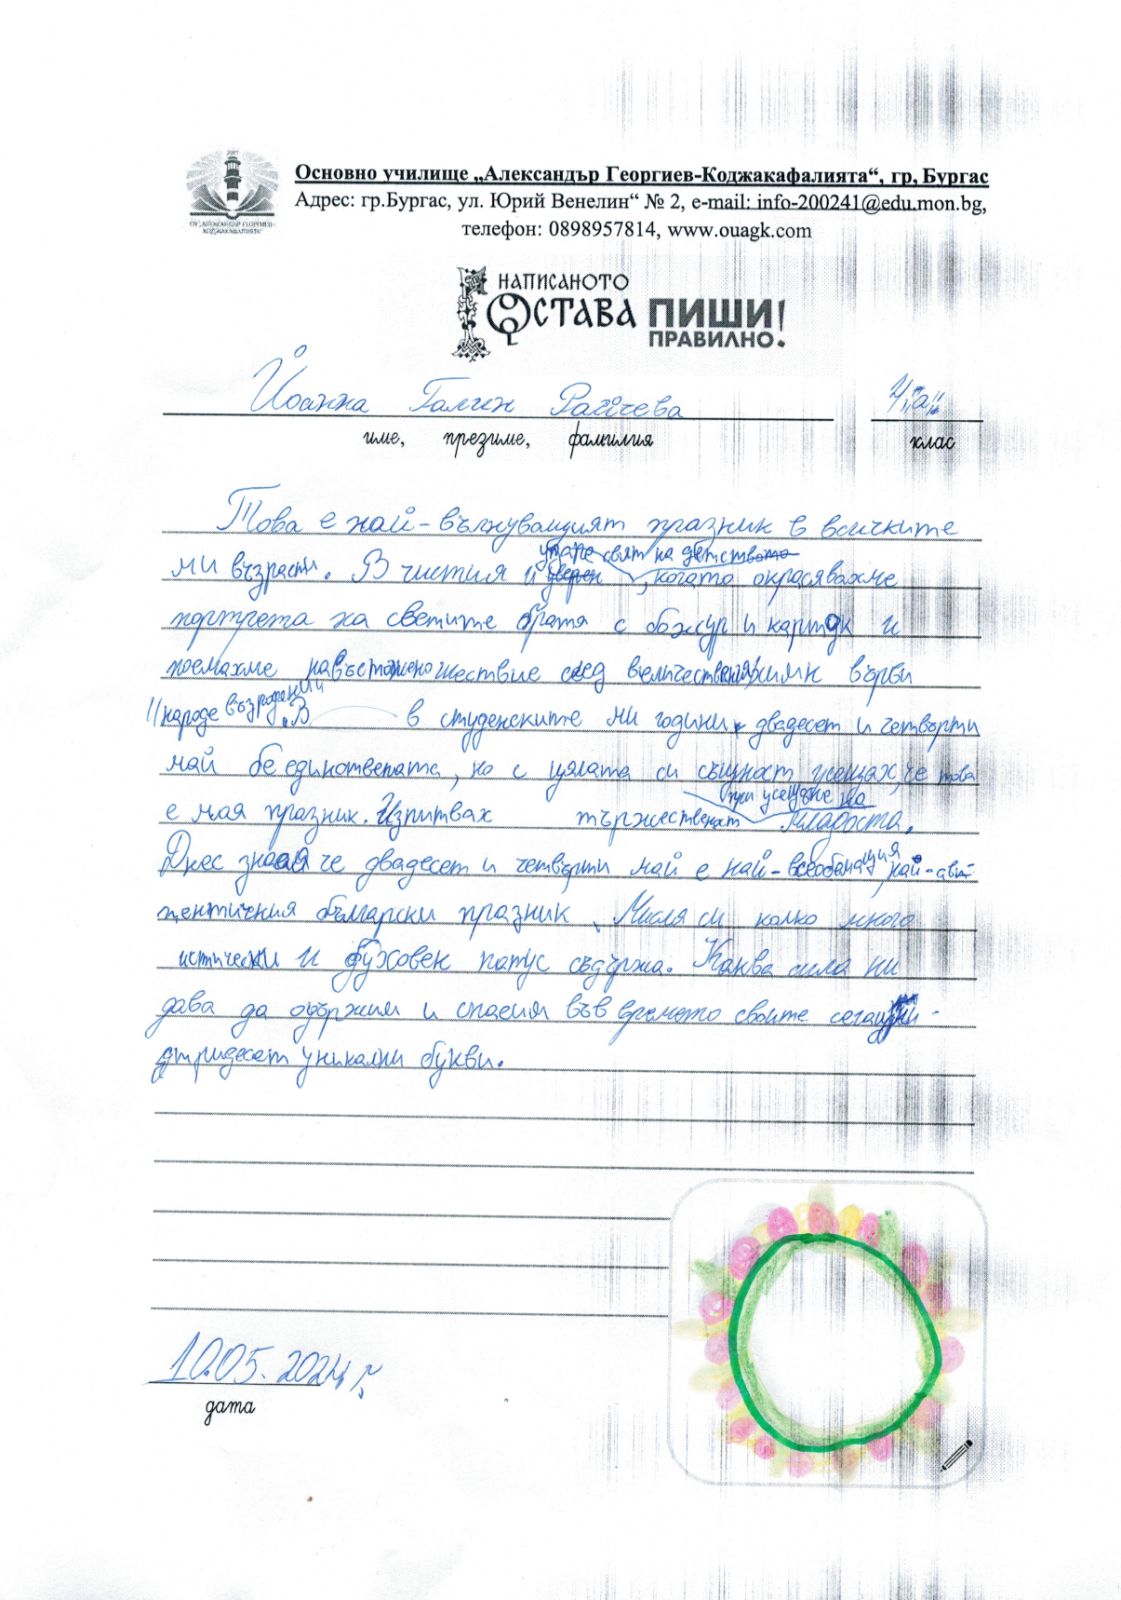 ОУ „АЛЕКСАНДЪР ГЕОРГИЕВ-
КОДЖАКАФАЛИЯТА“
Основно училище „Александър Георгиев-Коджакафалията“, гр, Бургас
Адрес: гр.Бургас, ул. Юрий Венелин“ № 2, e-mail: info-200241@edu.mon.bg,
телефон: 0898957814, www.ouagk.com
НАПИСАНОТО
ОСТАВА ПИШИ
ПРАВИЛНО!
Йоанна Галин Рабчева 4 „а“
име, презиме, фамилия клас
Това е най-вълнуващият празник в всичките
свят на детството
ми възрасти. В чистия и , когато окрасявахме
портрета на светите братя с божур и карток и
поемахме шествие след химн върви
народе възродений. В в студенските ми години двадесет и четвърти
май бе единствената, но с цялата си същност усещах, че това
при усещане на
е мая празник. Изпитвах тържественост младоста.
Днес зная че двадесет и четвърти май е най-всеобщация, най-авт-
центичния български празник. Мисля си колко много
истически и духовен патус съдържа. Каква сила ни
дава да одържим и спасим във времето своите сегашни -
тридесет уникални букви.
10.05.2024 г.
дата